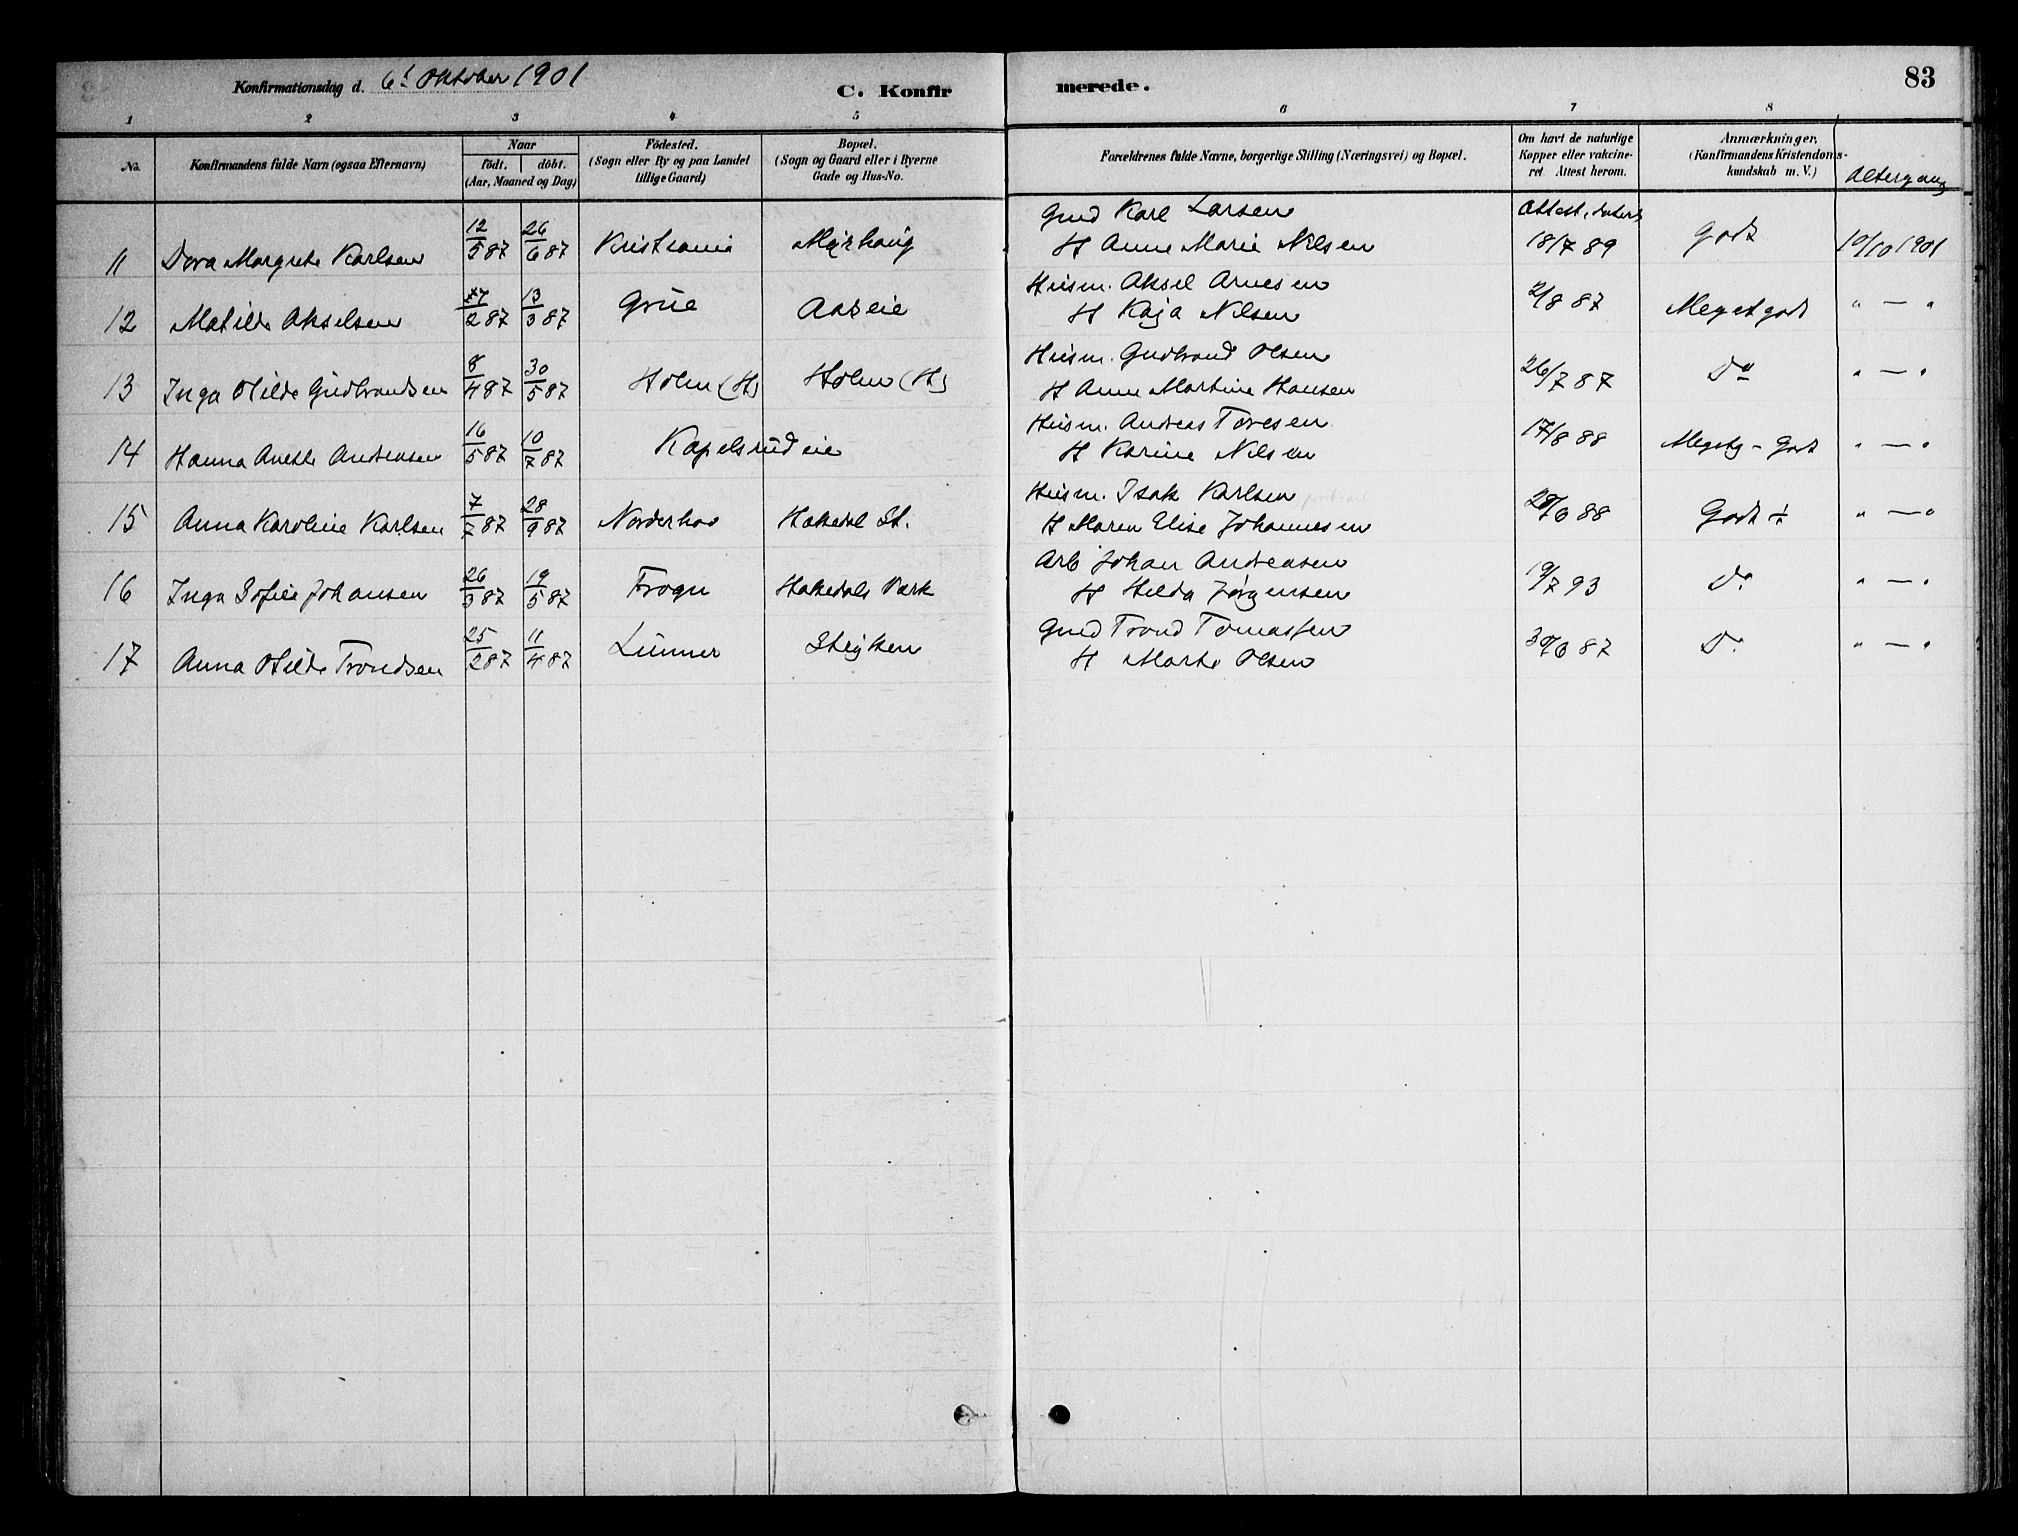 Konfirmationsdag d. 6t Oktober 1901
C. Konfir
merede.
83
1 2 3 4 5 6 7 8
No.
Konfirmandens fulde Navn (ogsaa Efternavn)
Naar
födt. döbt.
(Aar, Maaned og Dag)
Födested.
(Sogn eller By og paa Landet
tillige Gaard)
Bopæl.
(Sogn og Gaard eller i Byerne
Gade og Hus-No.
Forældrenes fulde Navne, borgerlige Stilling (Næringsvei) og Bopæl.
Om havt de naturlige
Kopper eller vakcine-
ret Attest herom.
Anmærkninger.
(Konfirmandens Kristendoms-
kundskab m. V.)
Altergang
Gmd Karl Larsen Attest
11 Dora Margrete Karlsen 12/5 87 26/6 87 Kristiania Myrhaug H Anne Marie Nilsen 18/7 89 Godt 10/10 1901
Husm. Aksel Arnesen
12 Matilde Akselsen /2 87 13/3 87 Grue Aaseie H Kaja Nilsen 2/8 87 Meget godt " — "
Husm. Gudbrand Olsen
13 Inga Otilde Gudbrandsen 8/4 87 30/5 87 Holm (H) Holm (H) H Anne Martine Hansen 26/7 87 Do " — "
Husm. Andreas Toresen
14 Hanna Anette Andreasen 16/5 87 10/7 87 Kapelsrudeie H Karine Nilsen 17/8 88 Megetg - Godt " — "
Husm. Isak Karlsen
15 Anna Karoline Karlsen 7/7 87 28/9 87 Norderhov Hakedal St. H Maren Elise Johannesen /6 88 Godt ÷ " — "
Arb Johan Andreasen
16 Inga Sofie Johansen 26/3 87 19/5 87 Frogn Hakedals Værk H Hilda Jørgensen 19/7 93 Do " — "
Gmd Trond Tomassen
17 Anna Otilde Trondsen 25/2 87 11/4 87 Lunner Stryken H Marte Olsen 30/6 87 Do " — "